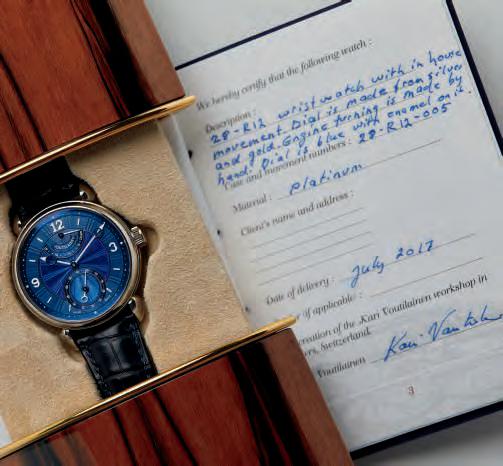 12
3
9
We hereby certify that the following watch :
Description :
28-R12 wristwatch with in house
movement. Dial is made from silver
and gold. Engine turning is made by
hand. Dial is blue with enamel on it.
Case and movement numbers : 28-R12-005
Material : Platinum
Client's name and address :
Date of delivery : July 2017
if applicable :
creation of the Kari Voutilainen workshop in
Switzerland.
Voutilainen
3